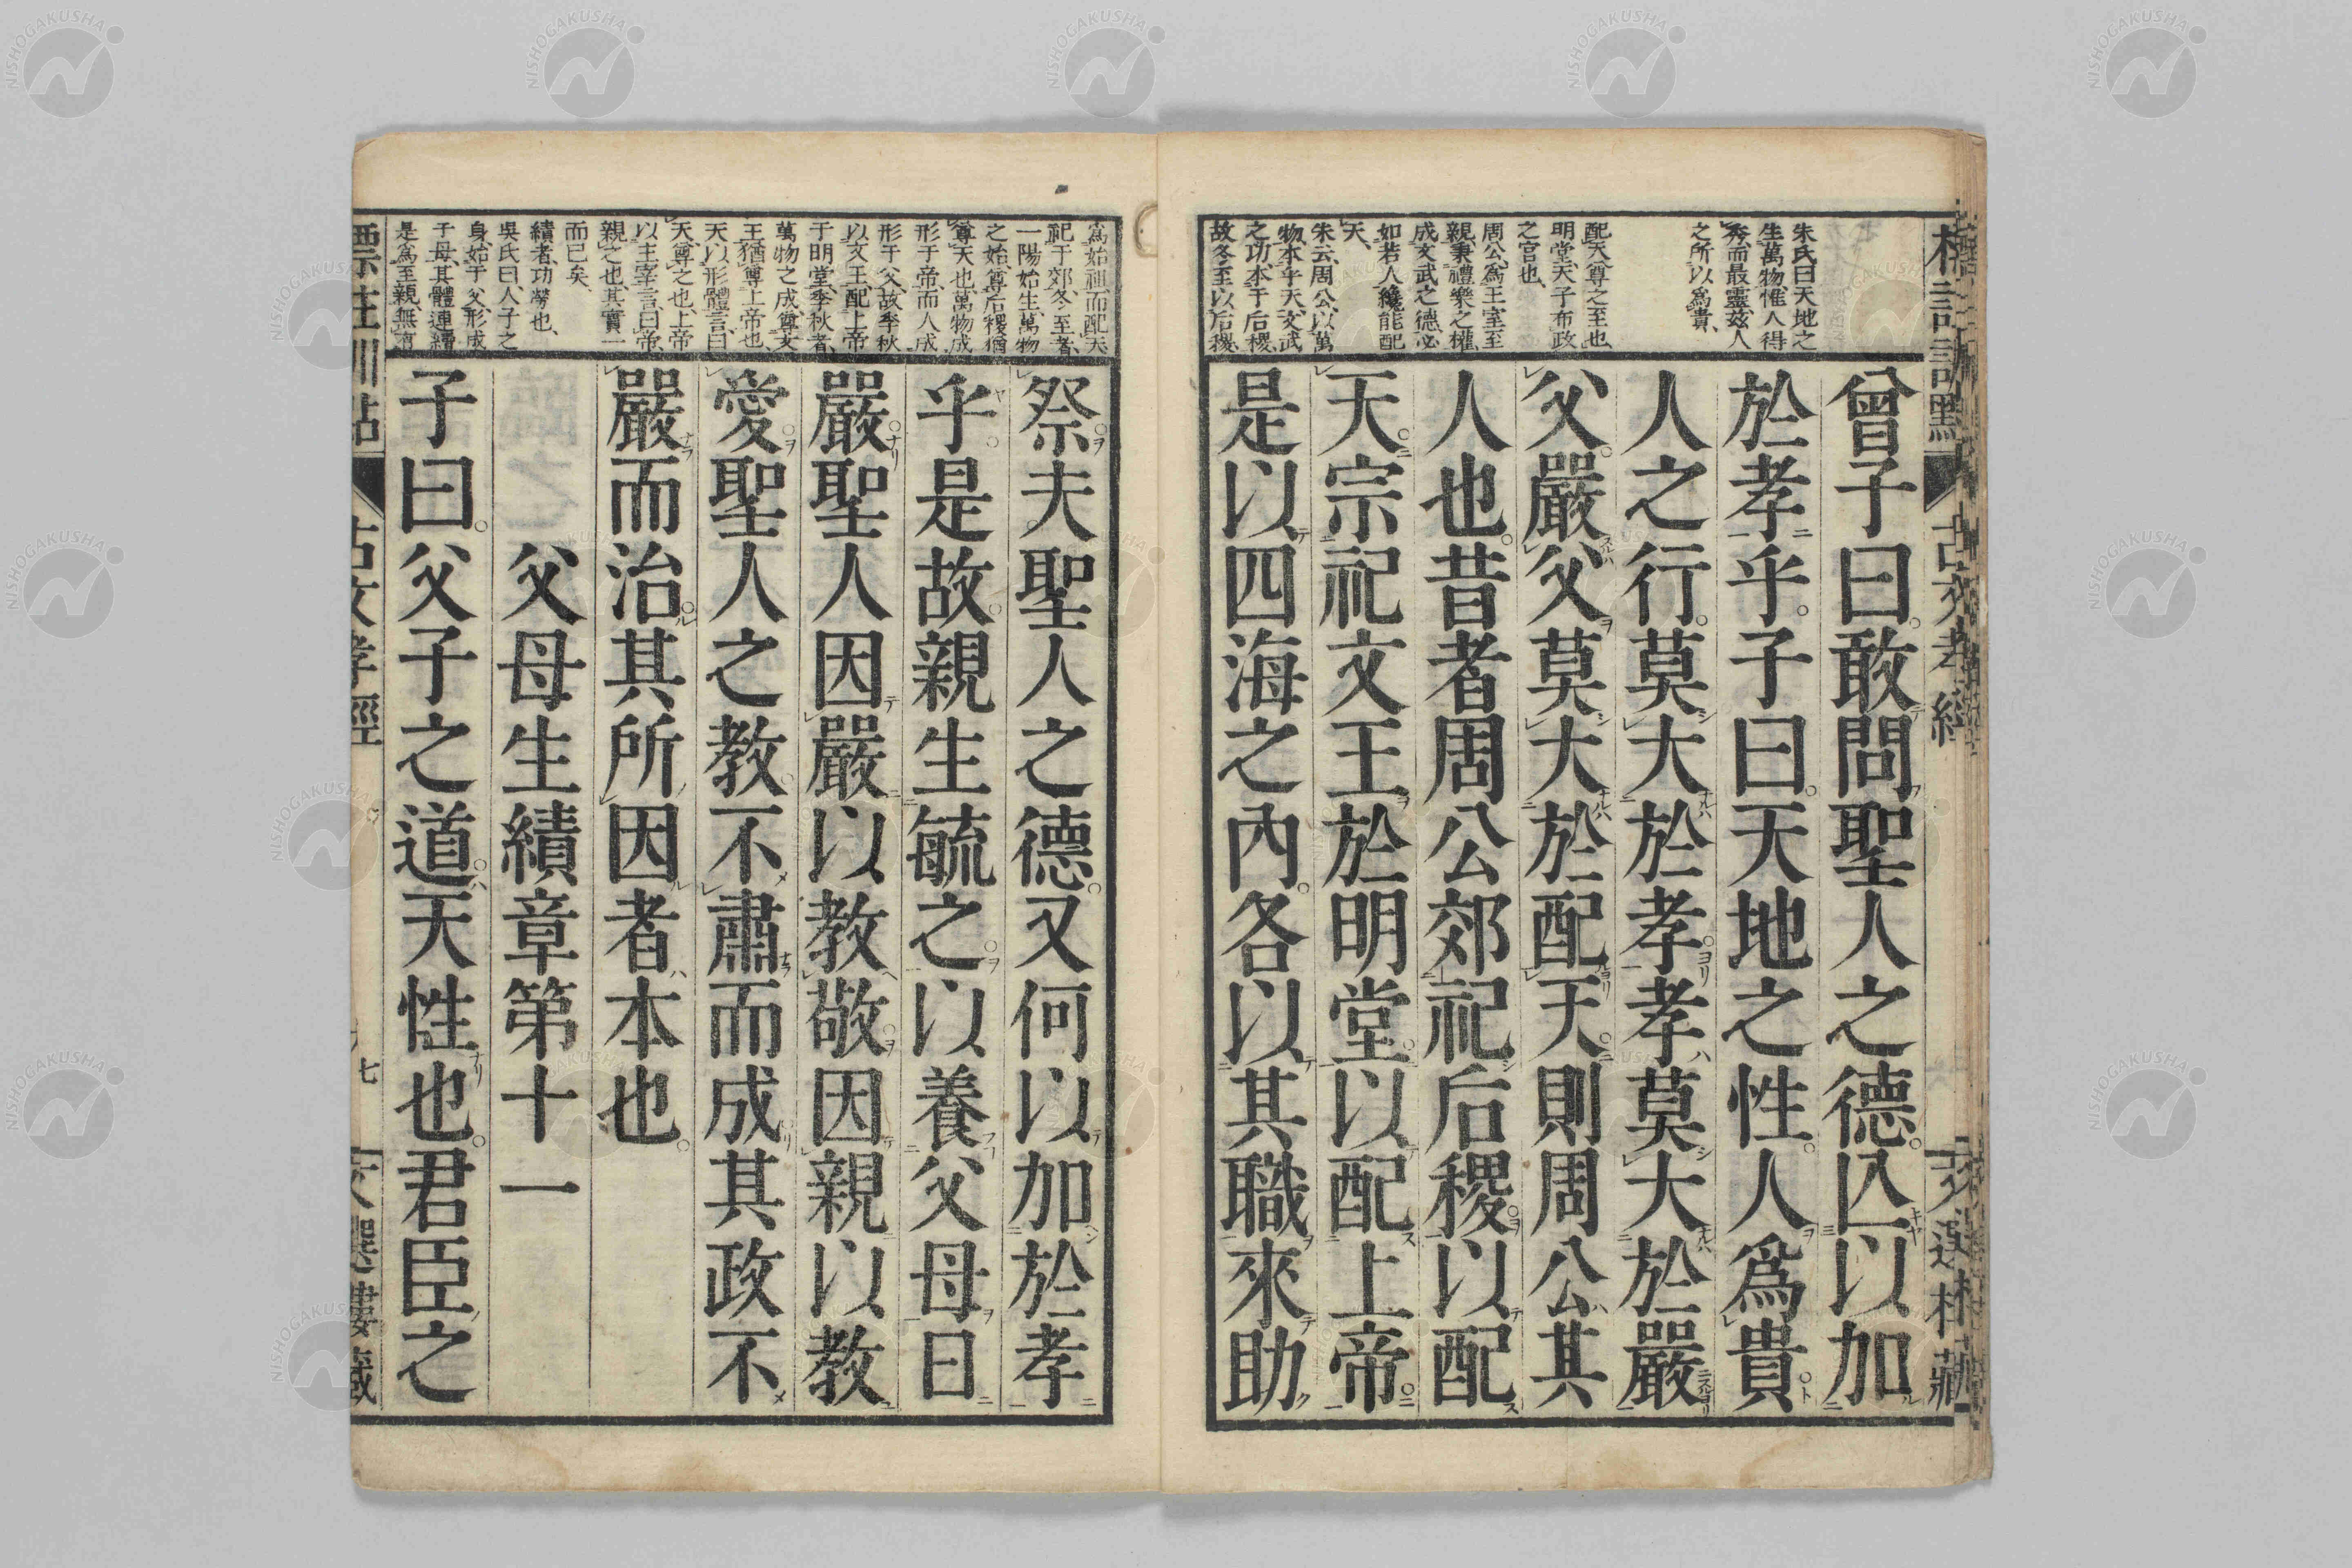 朱氏曰天地之
生萬物惟人得
秀而最靈茲人
之所以爲貴
配天尊之至也
明堂天子布政
之官也
周公爲王室至
親秉禮樂之權
成文武之德必
如若人纔能配
天
朱云周公以萬
物本乎天文武
之功本于后稷
故冬至以后稷
曾子曰敢問聖人之德亾以加
於孝乎子曰天地之性人爲貴
人之行莫大於孝孝莫大於嚴
父嚴父莫大於配天則周公其
人也昔者周公郊祀后稷以配
天宗祀文王於明堂以配上帝
是以四海之內各以其職來助
爲始祖而配天
祀于郊冬至者
一陽始生萬物
之始尊后稷猶
尊天也萬物成
形于帝而人成
形于父故季秋
以文王配上帝
于明堂季秋者
萬物之成尊文
王猶尊上帝也
天以形體言曰
天尊之也上帝
以主宰言曰帝
親之也其實一
而已矣
績者功勞也
吳氏曰人子之
身始于父形成
子母其體連續
是爲至親無
祭夫聖人之德又何以加於孝
乎是故親生毓之以養父母日
嚴聖人因嚴以教敬因親以教
愛聖人之教不肅而成其政不
嚴而治其所因者本也
父母生績章第十一
子曰父子之道天性也君臣之
標注訓點 古文孝經 七 文選樓藏
NISHOGAKUSHA